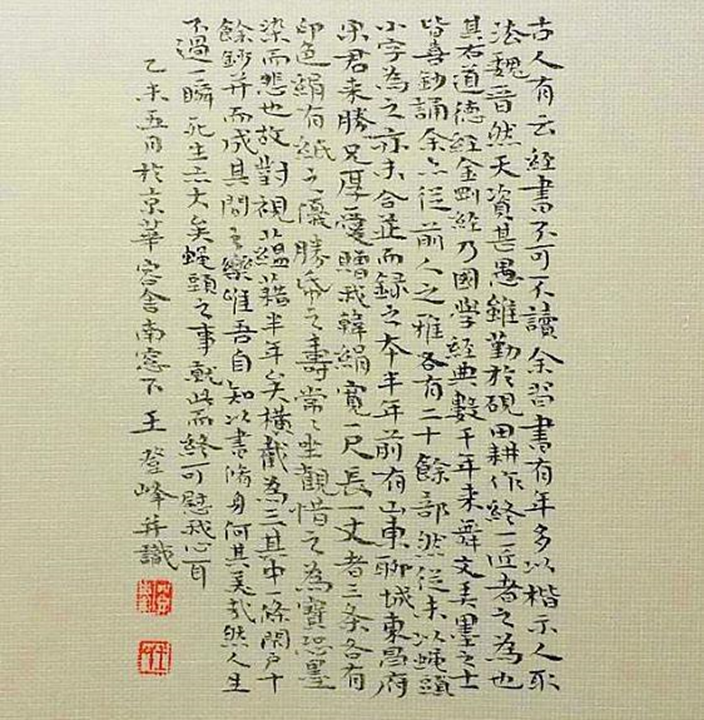 古人有云經書不可不讀余習書有年多以楷示人取
法魏晋然天資甚愚雖勤於硯田耕作終一匠者之為也
其右道德經金剛經乃國學經典數千年来舞文美墨之士
皆喜鈔誦余亦從前人之雅各有二十餘部然從未以蝇頭
小字為之亦未合益而録之本半年前有山東聊城東昌府
宋君来勝兄厚愛贈我韓絹寬一尺長一丈者三条各有
印色絹有紙之優勝帛之壽常〻坐觀惜之為寶恐墨
染而悲也故對視蕴藉半年矣横截為三其中一條閉户十
餘鈔并而成其間之樂唯吾自知以書脩身何其美哉然人生
不過一瞬死生亦大矣蝇頭之事就此而終可慰我心耳
乙未五月於京華容舍南窓下王登峰并識